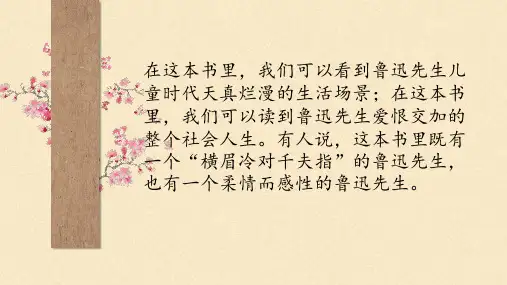 在这本书里，我们可以看到鲁迅先生儿
童时代天真烂漫的生活场景；在这本书
里，我们可以读到鲁迅先生爱恨交加的
整个社会人生。有人说，这本书里既有
一个“横眉冷对千夫指”的鲁迅先生，
也有一个柔情而感性的鲁迅先生。